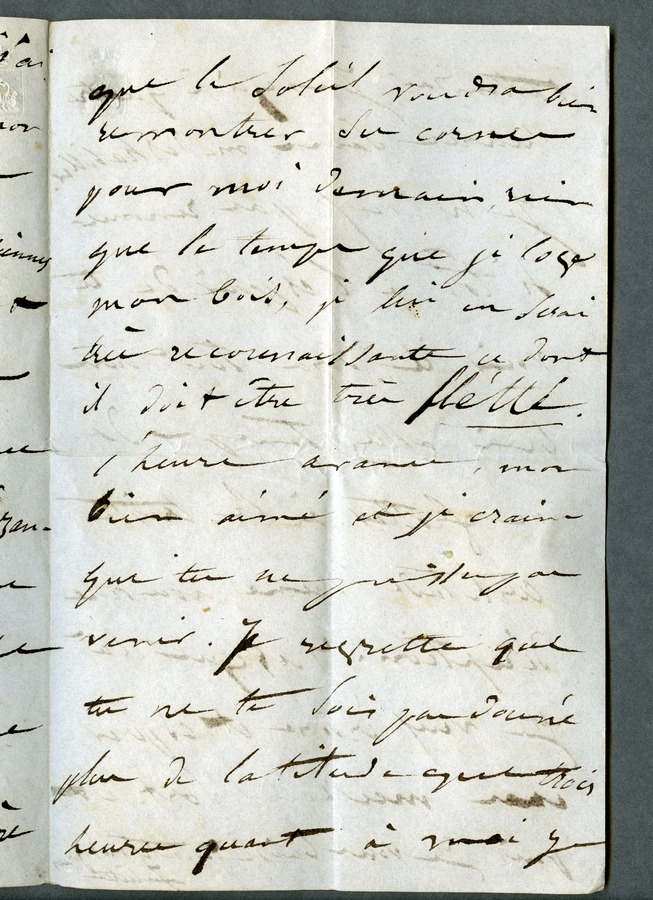 que le Soleil voudra bien
remontrer Ses cornes
pour moi demain, rien
que le temps que je loge
mon bois, je lui en Serai
très reconnaissante ce dont
il doit être très flétté.
l'heure avance, mon
bien aimé et je crains
que tu ne puisses pas
venir. Je regrette que
tu ne te Sois pas donné
plus de latitude que trois
heures quant à moi